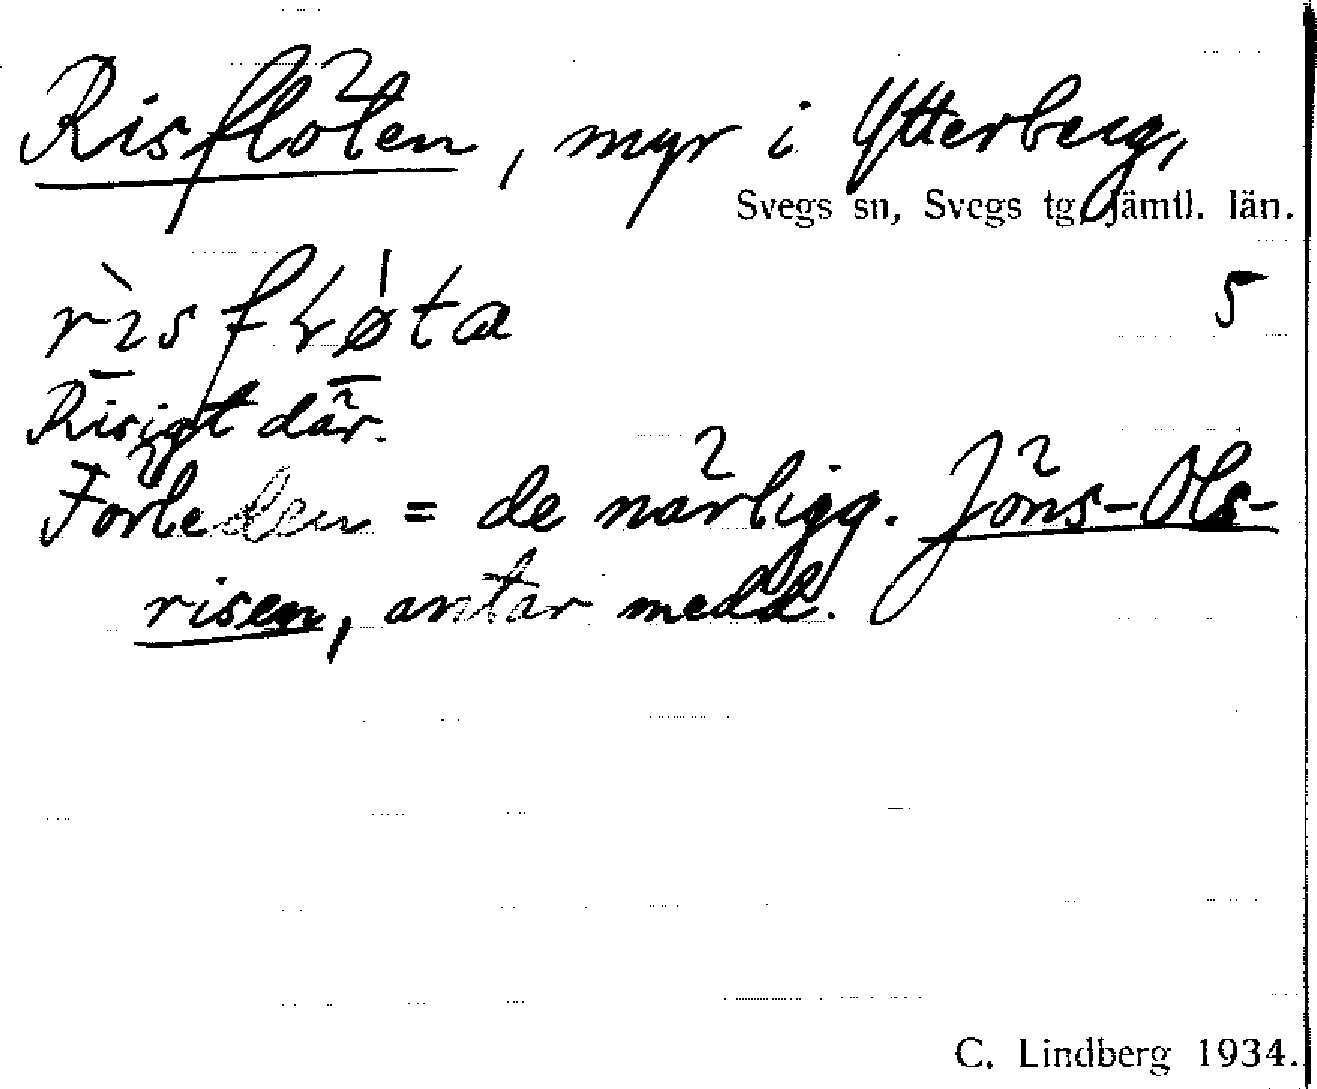 Risflöten, myr i Ytterberg,
Svegs sn, Svegs tg, Jämtl. län.
5
Risigt där.
Förleden = de närligg. Jöns-Ols-
risen, antar medd.
C. Lindberg 1934.